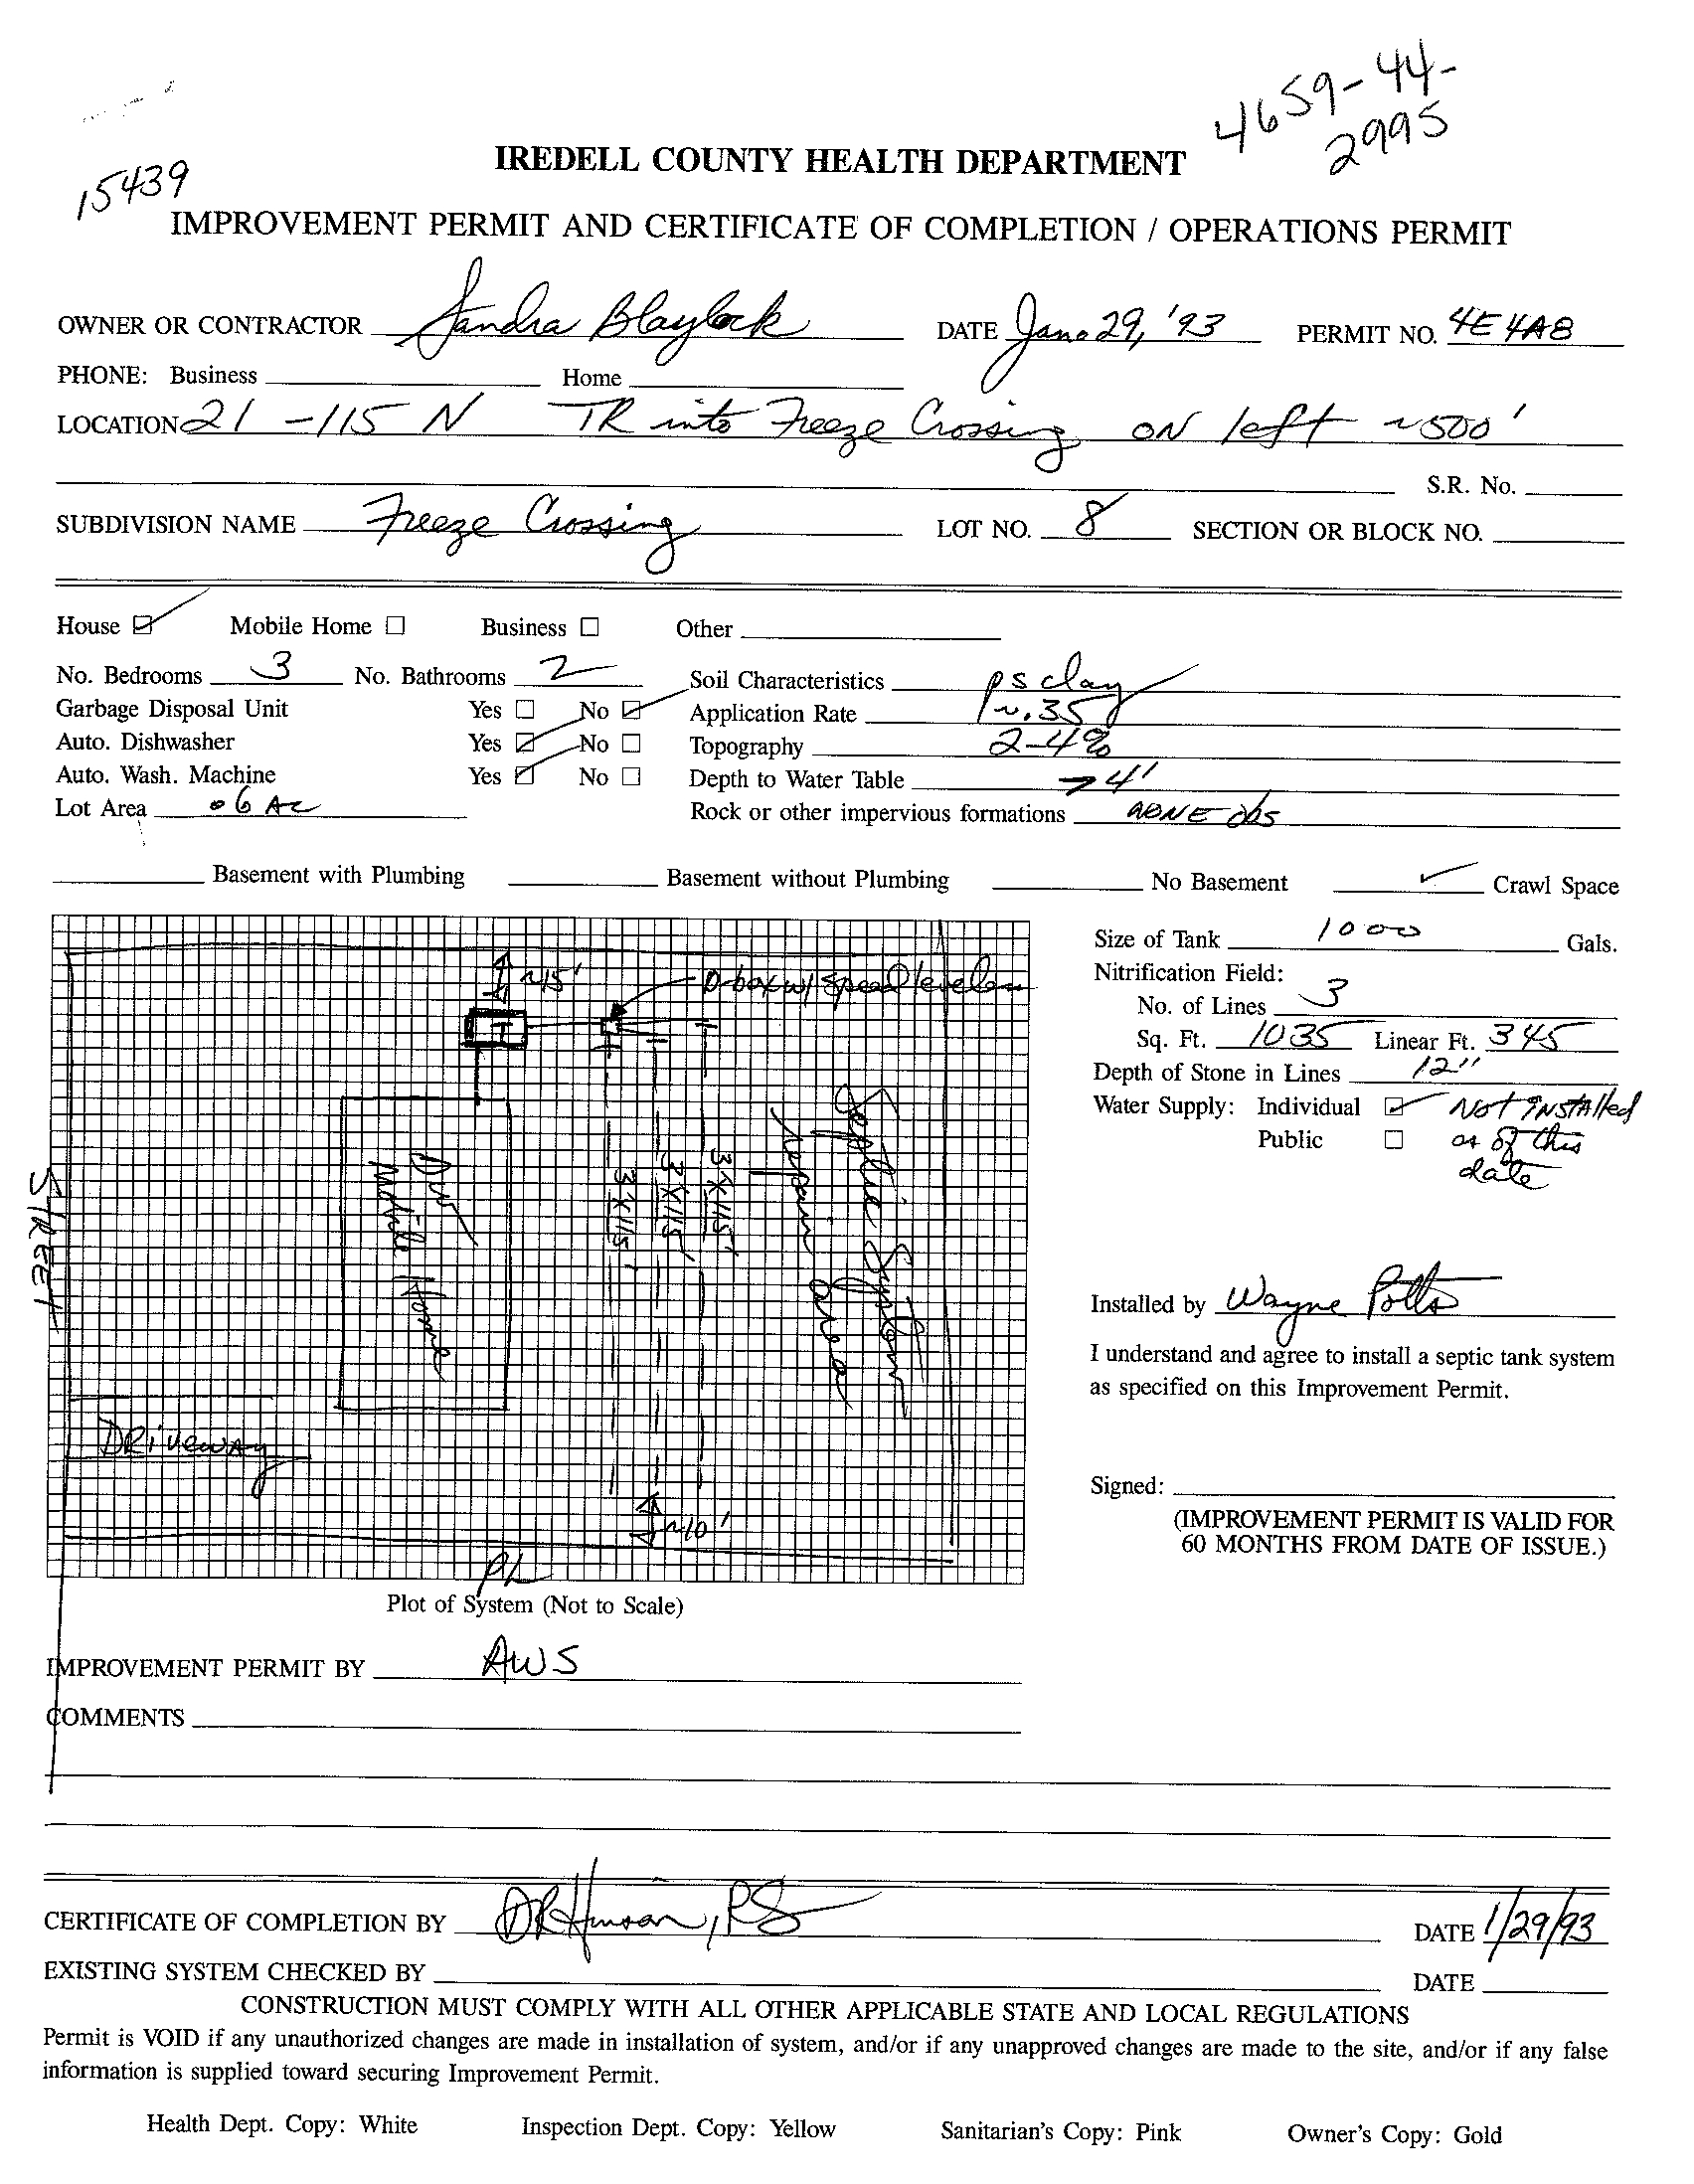 4659-44-
2995
15439
IREDELL COUNTY HEALTH DEPARTMENT
IMPROVEMENT PERMIT AND CERTIFICATE OF COMPLETION / OPERATIONS PERMIT
OWNER OR CONTRACTOR Sandra Blaylock DATE Jan. 29, '93 PERMIT NO. 4E4A8
PHONE: Business Home
LOCATION 21 -115 N TR into Freeze Crossing on left ~500'
S.R. No.
SUBDIVISION NAME Freeze Crossing LOT NO. 8 SECTION OR BLOCK NO.
House ☑ Mobile Home ☐ Business ☐ Other
No. Bedrooms 3 No. Bathrooms 2 Soil Characteristics PS clay
Garbage Disposal Unit Yes ☐ No ☑ Application Rate ~.35
Auto. Dishwasher Yes ☑ No ☐ Topography 2-4%
Auto. Wash. Machine Yes ☑ No ☐ Depth to Water Table > 4'
Lot Area .6 Ac Rock or other impervious formations NONE obs
Basement with Plumbing Basement without Plumbing No Basement ✓ Crawl Space
~15' D-box w/ speed levelers
T
DW Mobile Home
3'X115'
3'X115'
3'X115'
Septic System
repair area
STREET
DRiveway
~10'
PL
Plot of System (Not to Scale)
Size of Tank 1000 Gals.
Nitrification Field:
No. of Lines 3
Sq. Ft. 1035 Linear Ft. 345
Depth of Stone in Lines 12"
Water Supply: Individual ☑ Not installed
Public ☐ as of this
date
Installed by Wayne Potts
I understand and agree to install a septic tank system
as specified on this Improvement Permit.
Signed:
(IMPROVEMENT PERMIT IS VALID FOR
60 MONTHS FROM DATE OF ISSUE.)
IMPROVEMENT PERMIT BY AWS
COMMENTS
CERTIFICATE OF COMPLETION BY DR Hinson, RS DATE 1/29/93
EXISTING SYSTEM CHECKED BY DATE
CONSTRUCTION MUST COMPLY WITH ALL OTHER APPLICABLE STATE AND LOCAL REGULATIONS
Permit is VOID if any unauthorized changes are made in installation of system, and/or if any unapproved changes are made to the site, and/or if any false
information is supplied toward securing Improvement Permit.
Health Dept. Copy: White Inspection Dept. Copy: Yellow Sanitarian's Copy: Pink Owner's Copy: Gold